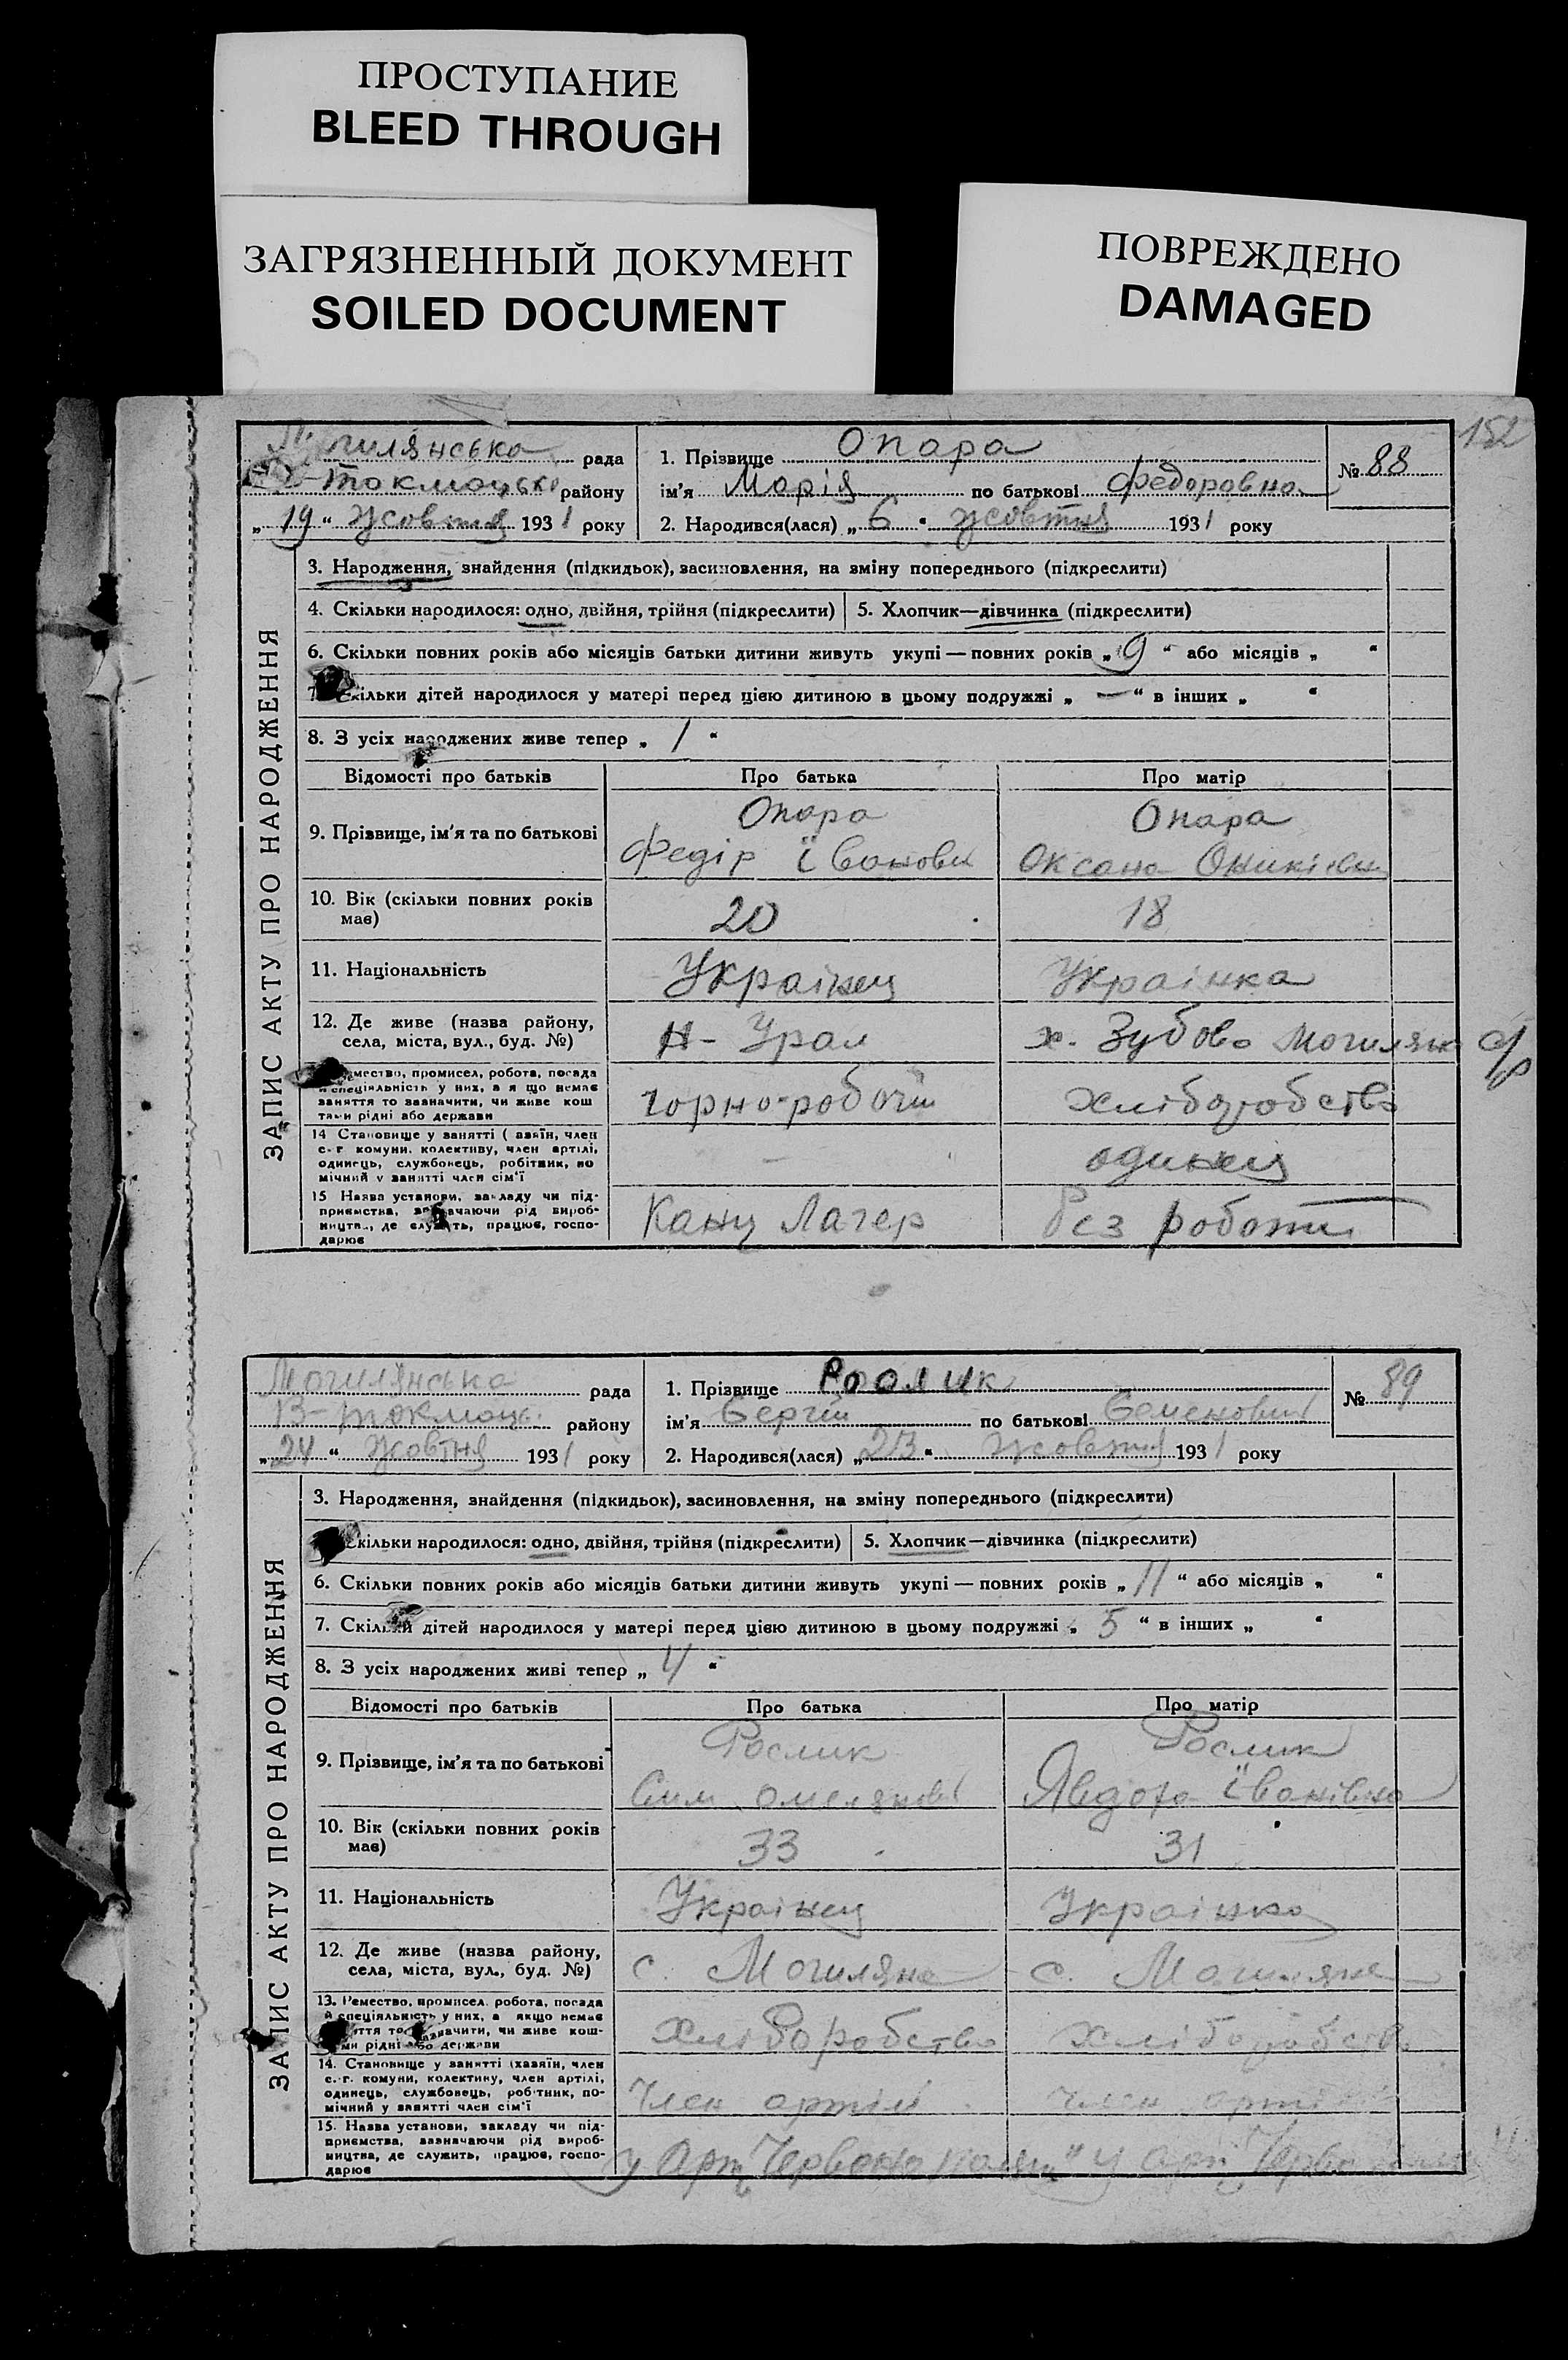 ПРОСТУПАНИЕ
BLEED THROUGH
ЗАГРЯЗНЕННЫЙ ДОКУМЕНТ
SOILED DOCUMENT
ПОВРЕЖДЕНО
DAMAGED
152
ЗАПИС АКТУ ПРО НАРОДЖЕННЯ
Могилянська рада
Токмацьк району
„19“ жовтня 1931 року
1. Прізвище Опара
№ 88
ім'я Марія по батькові Федоровна
2. Народився(лася) „6“ жовтня 1931 року
3. Народження, знайдення (підкидьок), засиновлення, на зміну попереднього (підкреслити)
4. Скільки народилося: одно, двійня, трійня (підкреслити) 5. Хлопчик—дівчинка (підкреслити)
6. Скільки повних років або місяців батьки дитини живуть укупі — повних років „9“ або місяців „ “
7. Скільки дітей народилося у матері перед цією дитиною в цьому подружжі „—“ в інших „ “
8. З усіх народжених живе тепер „1“
Відомості про батьків Про батька Про матір
9. Прізвище, ім'я та по батькові
Опара
Федір Їванови
Опара
Оксана
10. Вік (скільки повних років має) 20 18
11. Національність Українец Українка
12. Де живе (назва району, села, міста, вул., буд. №) Н-Урал х. Зубово Могилян с/р
13. Ремество, промисел, робота, посада
й спеціяльність у них, а якщо немає
заняття то зазначити, чи живе кош
тами рідні або держави
горно-робочій
хліборобство
14 Становище у занятті (хазяїн, член
с.-г комуни, колективу, член артілі,
одинець, службовець, робітник, по
мічний у занятті член сім'ї
—
одинец
15 Назва установи, закладу чи під-
приємства, зазначаючи рід вироб-
ництва, де служить, працює, госпо-
дарює
Канц Лагер
без роботи
ЗАПИС АКТУ ПРО НАРОДЖЕННЯ
Могилянська рада
В-токмаць. району
„24“ жовтня 1931 року
1. Прізвище Рослик
№ 89
ім'я Сергій по батькові Семенович
2. Народився(лася) „23“ жовтня 1931 року
3. Народження, знайдення (підкидьок), засиновлення, на зміну попереднього (підкреслити)
4. Скільки народилося: одно, двійня, трійня (підкреслити) 5. Хлопчик—дівчинка (підкреслити)
6. Скільки повних років або місяців батьки дитини живуть укупі — повних років „11“ або місяців „ “
7. Скільки дітей народилося у матері перед цією дитиною в цьому подружжі „5“ в інших „ “
8. З усіх народжених живі тепер „4“
Відомості про батьків Про батька Про матір
9. Прізвище, ім'я та по батькові
Рослик
Рослик
Явдоха Їванівна
10. Вік (скільки повних років має) 33 31
11. Національність Українец Українка
12. Де живе (назва району, села, міста, вул., буд. №) с. Могиляне с. Могиляне
13. Ремество, промисел, робота, посада
й спеціяльність у них, а якщо немає
заняття то зазначити, чи живе кош-
тами рідні або держави
Хліборобство
хліборобств
14. Становище у занятті (хазяїн, член
с.-г. комуни, колективу, член артілі,
одинець, службовець, робітник, по-
мічний у занятті член сім'ї
Член артілі
член арті
15. Назва установи, закладу чи під-
приємства, зазначаючи рід вироб-
ництва, де служить, працює, госпо-
дарює
у Арт „Червоно
у арт „Черво